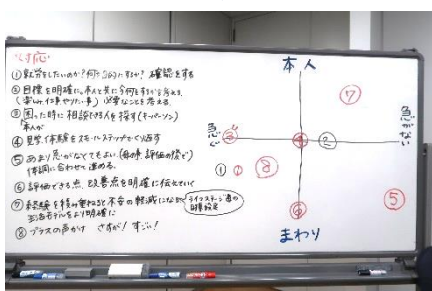 対応
① 就労をしたいのか？何のためにするか？確認をする
② 目標を明確に。本人と共に今何をするかを考える。
(楽しみ、仕事、やりたい事) 必要なことを考える
③ 困った時に相談できる人を探す(キーパーソン)
本人が
④ 見学、体験をスモールステップでくり返す
⑤ あまり急がなくてもよい。(自己評価の後で)
体調に合わせて進める。
⑥ 評価できる点、改善点を明確に伝えていく
⑦ 経験を積み重ねると不安の軽減になる
ライフステージ毎の
目標設定
モデルをより明確に
⑧ プラスの声かけ さすが！すごい！
本人
⑦
急ぐ
③
④
②
急がない
①
①
⑧
⑤
⑥
まわり